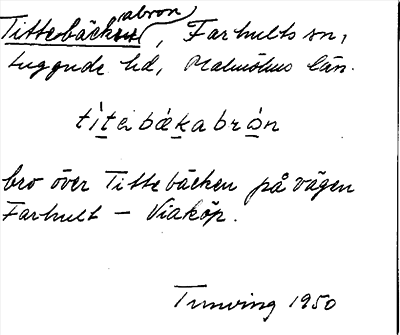 Tittebäckabron, Farhults sn,
Luggude hd, Malmöhus län.
tìtebákabrón
bro över Tittebäcken på vägen
Farhult – Viaköp.
Tunving 1950